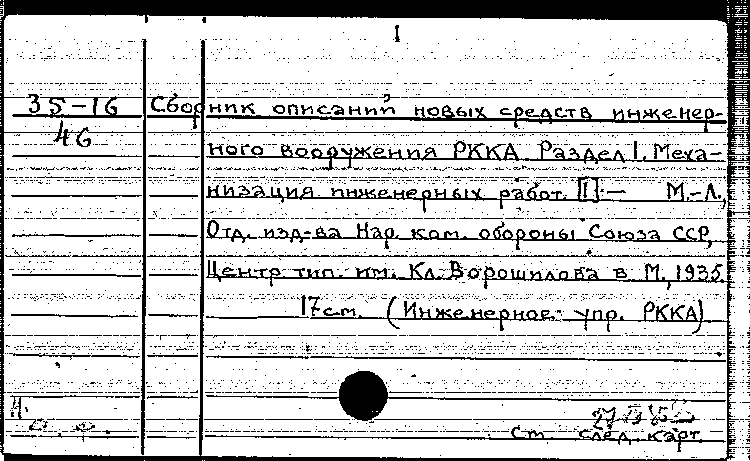 1
35-16 Сборник описаний новых средств инженер-
46 ного вооружения РККА Раздел I. Меха-
низация инженерных работ. [I] — М.-Л.,
Отд. изд-ва Нар. ком. обороны Союза ССР,
Центр. тип. им. Кл. Ворошилова в М., 1935.
17 см. (Инженерное упр. РККА)
И.
См. след. карт.